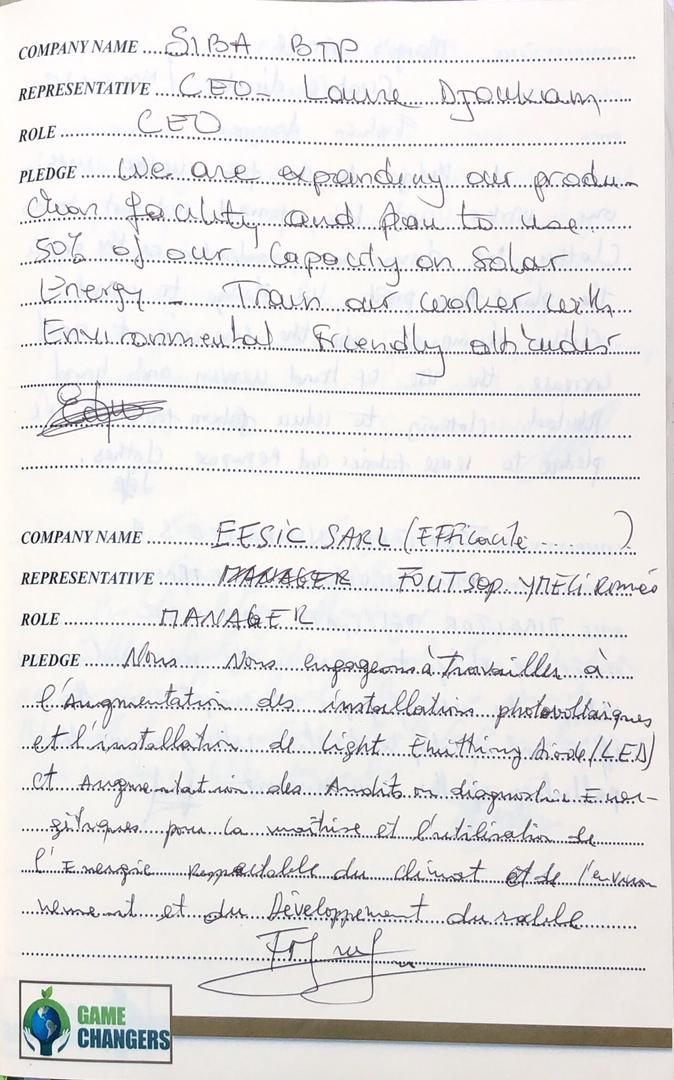 COMPANY NAME SIBA BTP
REPRESENTATIVE CEO - Laure Djoukam
ROLE CEO
PLEDGE We are expanding our produ-
ction facility and plan to use
50% of our Capacity on Solar
Energy - Train our worker with
Environmental Friendly attitudes
COMPANY NAME EESIC SARL (Efficacité ......)
REPRESENTATIVE MANAGER FOUTSOP YMELI Roméo
ROLE MANAGER
PLEDGE Nous Nous engageons à travailler à
l'Augmentation des installations photovoltaïques
et l'installation de Light Emitthing Diode (LED)
et Augmentation des Audits ou diagnostic Ener-
gétiques pour la maîtrise et l'utilisation de
l'Energie Respectable du climat et de l'environ
nement et du Développement durable
GAME
CHANGERS